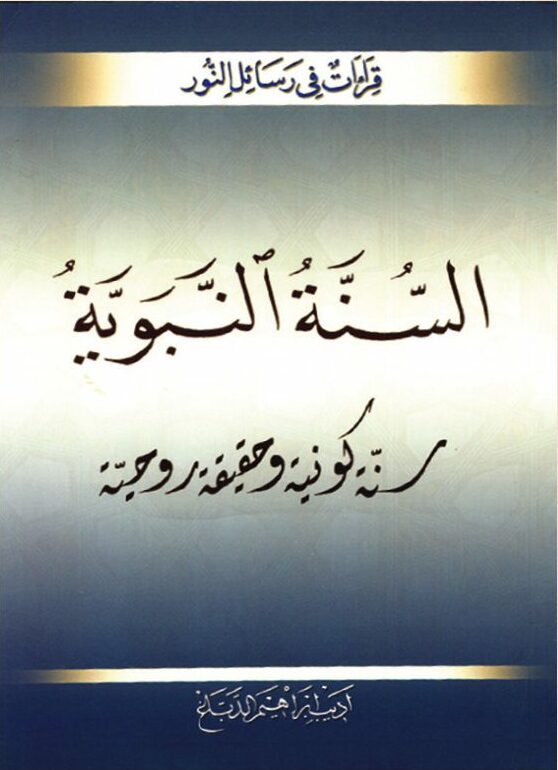 قِرَاءَاتٌ فِي رَسَائِلِ النُّور
السُّنَّةُ ٱلنَّبَوِيَّةُ
سنّة كونية وحقيقة روحيّة
أديب إبراهيم الدباغ